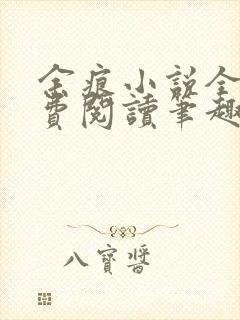 金痕小說全
費閱讀筆趣
八寶醬